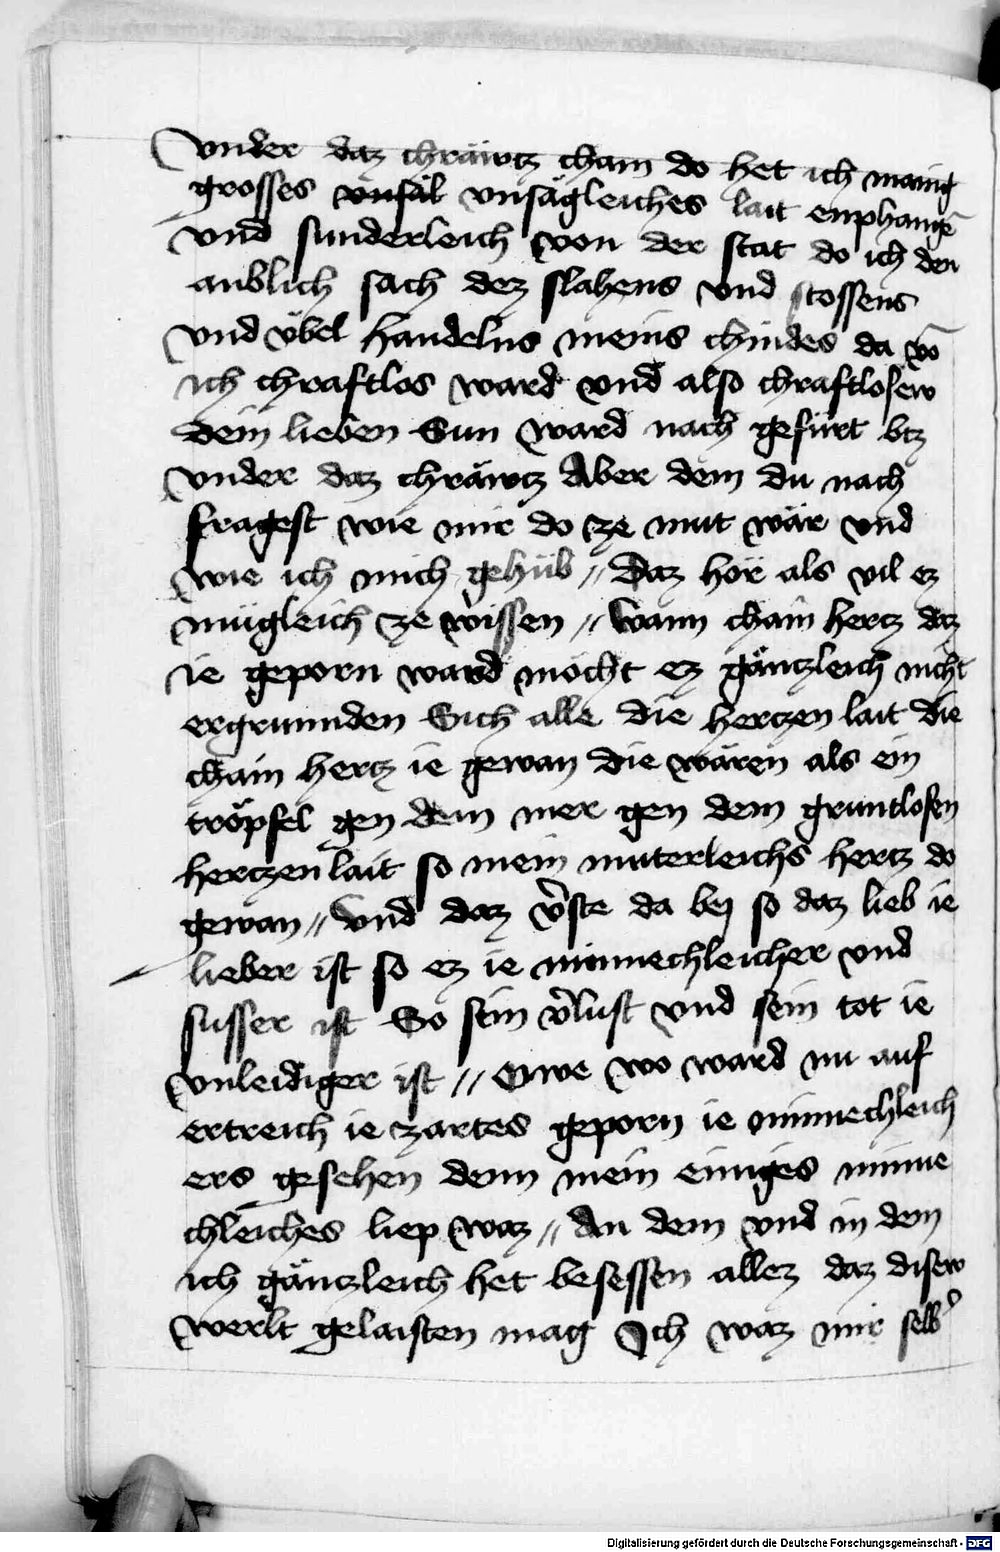 vnder daz chräwtz cham do het ich manig
grosses vnsäl vnsägleiches lait enphangē
vnd sunderleich von der stat do ich den
anblich sach dez slahens vnd stossens
vnd vbel handelns meins chindes da vō
ich chraftlos ward vnd also chraftlosew
dein lieben Sun ward nach gefürt btz
vnder daz chräwtz Aber dem du nach
fragest wie mir do ze mut wär vnd
wie ich mich gehüb // Daz hör als vil ez
mügleich ze wissen // wann chain hercz daz
ie geporn ward möcht ez gänczleich nicht
ergrunnden Sich alle die herczen lait die
chain hercz ie gewan die wären als ein
tröpfel gen dem mer gen dem gruntlosen
herczen lait so mein muterleichs hercz do
gewan // vnd daz v̓ste da bej so daz lieb ie
lieber ist so ez ie minnechleicher vnd
susser ist So sein v̓lust vnd sein tot ie
vnleidiger ist // Owe wo ward nu auf
ertreich ie zartes geporn ie minnechleich
ers gesehen denn mein einiges minne
chleiches liep waz // An dem vnd in dem
ich gänczleich het besessen allez daz disew
werlt gelaisten mag Ich waz mir selb̓
Digitalisierung gefördert durch die Deutsche Forschungsgemeinschaft - DFG